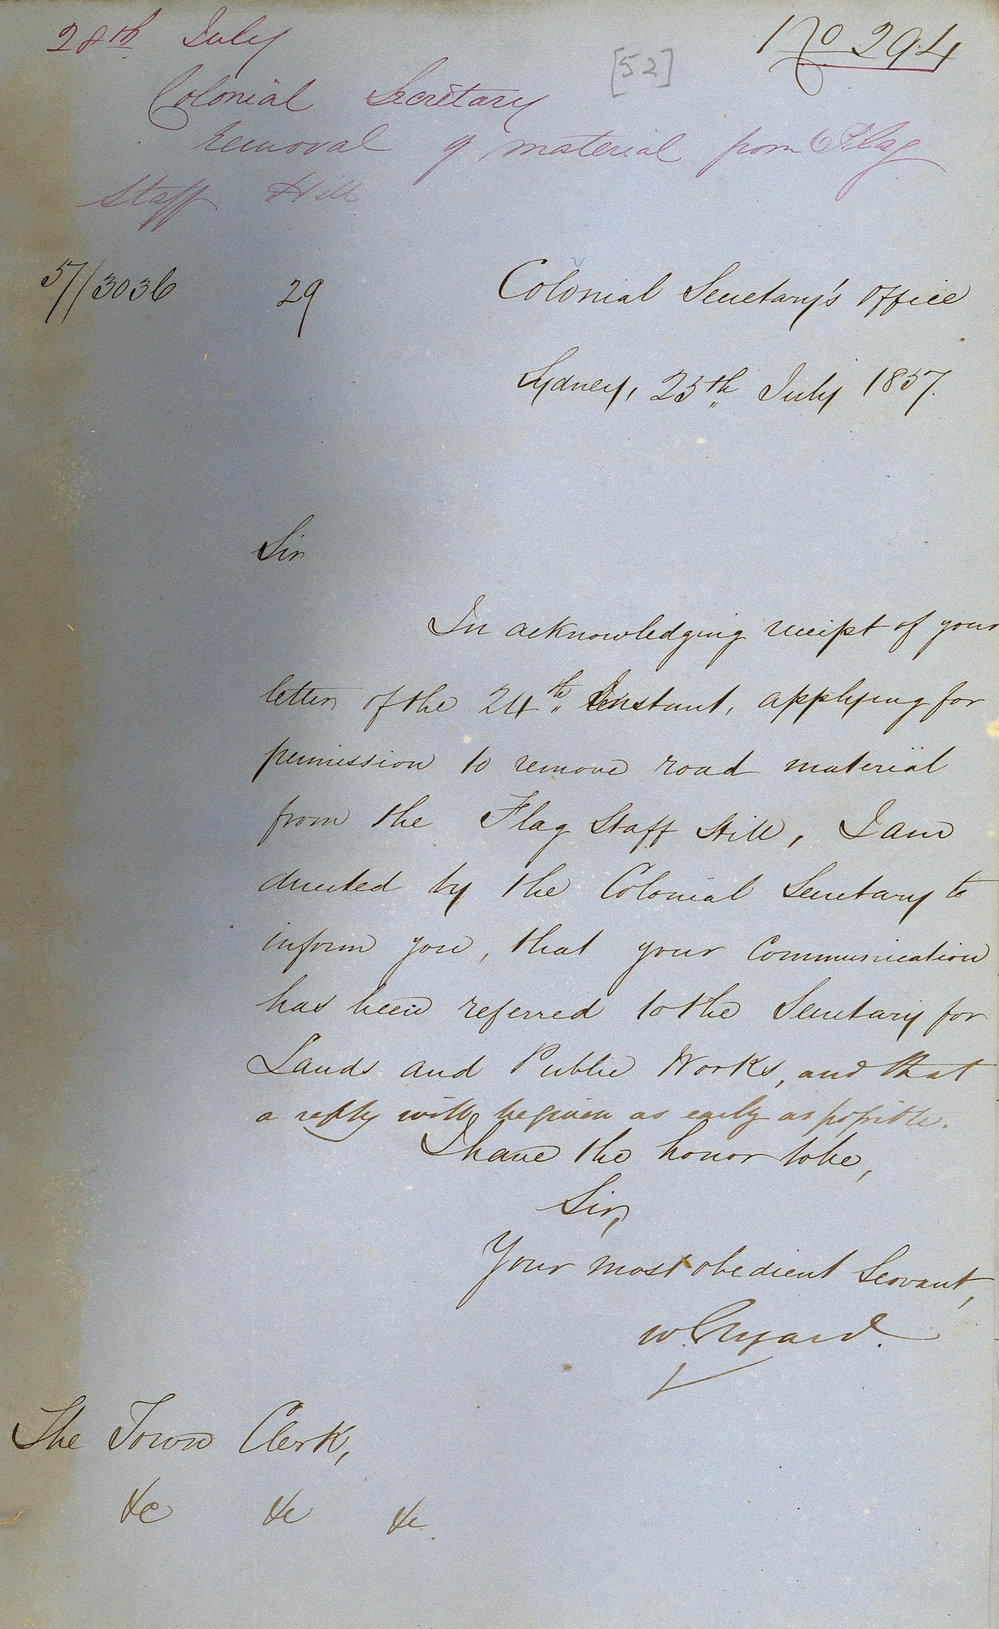 28th July
No 294
[52]
Colonial Secretary
removal of material from Flag
Staff Hill
57/3036 29 Colonial Secretary's Office
Sydney, 25th July 1857.
Sir
In acknowledging receipt of your
letter of the 24th Instant, applying for
permission to remove road material
from the Flag Staff Hill, I am
directed by the Colonial Secretary to
inform you, that your Communication
has been referred to the Secretary for
Lands and Public Works, and that
a reply will be given as early as possible.
I have the honor to be,
Sir,
Your most obedient Servant,
W.
The Town Clerk,
&c &c &c.